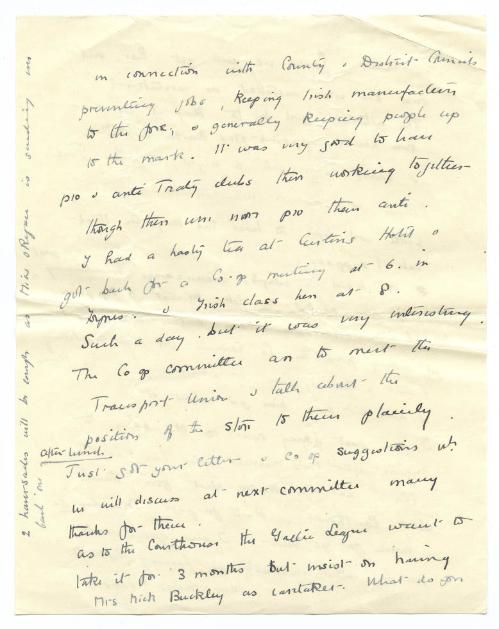 in connection with County & District Councils
preventing jobs, keeping Irish manufacture
to the fore, & generally keeping people up
to the mark. It was very good to have
pro & anti Treaty clubs then working together
though there were more pro than anti.
I had a hasty tea at Hotel &
got back for a Co-op meeting at 6. in
. & Irish class here at 8.
Such a day. but it was very interesting.
The Co op committee are to meet the
Transport Union & talk about the
position of the store to them plainly.
after lunch
Just got your letter & Co op suggestions wh
we will discuss at next committee many
thanks for them.
as to the Courthouse the Gaelic League want to
take it for 3 months but insist on having
Mrs Mick Buckley as caretaker. What do you
2 haversacks will be enough as Miss O'Regan is sending me
back one